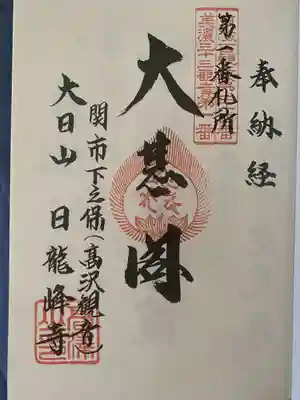 奉納経
第一番札所
美濃三十三観音第一番
大悲閣
関市下之保(高沢観音)
大日山 日龍峰寺